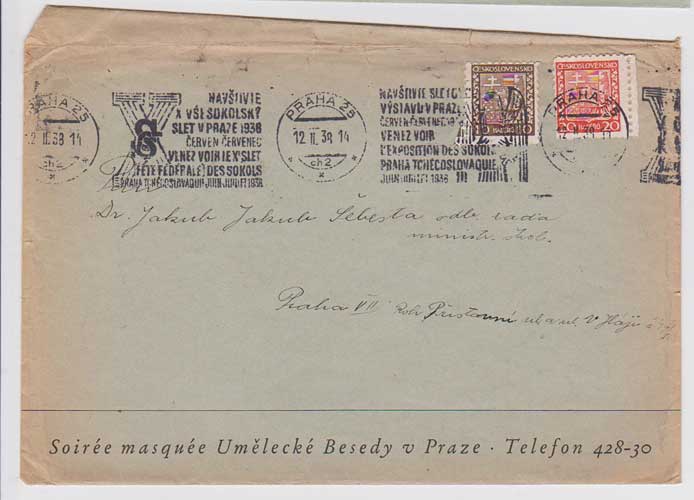 PRAHA 25
12 II. 38 14
NAVŠTIVTE
X VŠESOKOLSKÝ
SLET V PRAZE 1938
ČERVEN ČERVENEC
VENEZ VOIR LE XE SLET
(FÊTE FÉDÉRALE) DES SOKOLS
PRAHA TCHÉCOSLOVAQUIE JUIN JUILLET 1938
PRAHA 25
12 II. 38 14
ch2
NAVŠTIVTE
VÝSTAVU V PRAZE
ČERVEN ČERVENEC
VENEZ VOIR
L'EXPOSITION DES SOKOLS
PRAHA TCHECOSLOVAQUIE
JUIN JUILLET 1938
ČESKOSLOVENSKO
10
ČESKOSLOVENSKO
20 20
PRAHA
Pan
Dr. Jakub Jakub Šebesta odb. rada
ministr. škol.
Praha VII Roh Přístavní ul a ul. V Háji
Soirée masquée Umělecké Besedy v Praze · Telefon 428-30